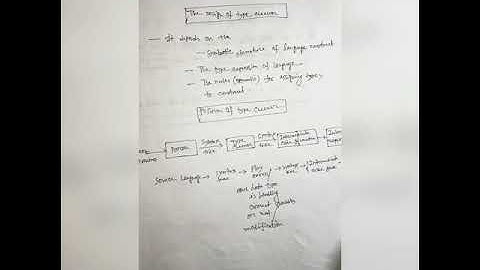 The design of type checker
— It depends on the
— Syntactic structure of language construct
— The type expression of language
— The rules (semantic) for assigning types
to construct
Position of type checker
Parser Syntax tree Type checker Syntax tree Intermediate code generator
Source language → Syntax tree → → Syntax tree → Intermediate code
and data type
is
correct
or not
modification